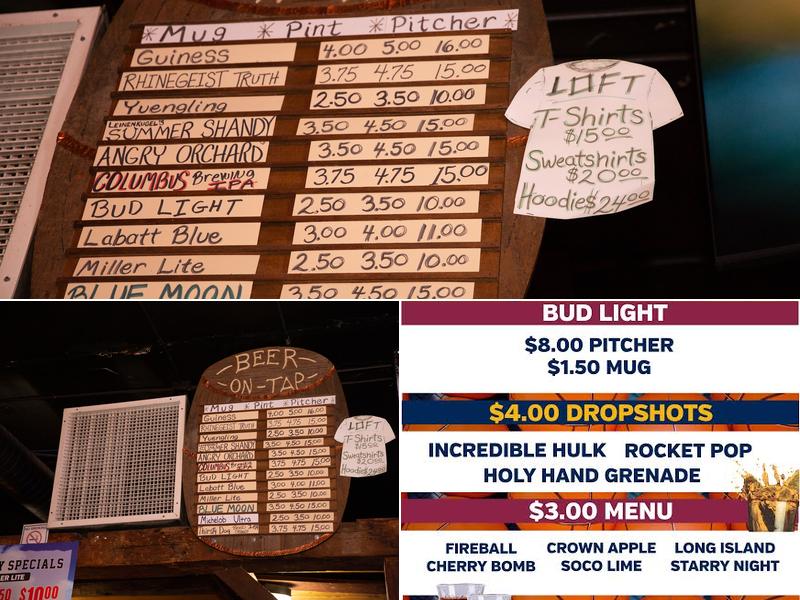 *Mug *Pint *Pitcher*
Guiness 4.00 5.00 16.00
RHINEGEIST TRUTH 3.75 4.75 15.00
Yuengling 2.50 3.50 10.00
LEINENKUGEL'S
SUMMER SHANDY 3.50 4.50 15.00
ANGRY ORCHARD 3.50 4.50 15.00
COLUMBUS Brewing IPA 3.75 4.75 15.00
BUD LIGHT 2.50 3.50 10.00
Labatt Blue 3.00 4.00 11.00
Miller Lite 2.50 3.50 10.00
BLUE MOON 3.50 4.50 15.00
LOFT
T-Shirts
$15.00
Sweatshirts
$20.00
Hoodie $24.00
BEER
ON-TAP
Mug Pint Pitcher
Guiness 4.00 5.00 16.00
RHINEGEIST TRUTH 3.75 4.75 15.00
Yuengling 2.50 3.50 10.00
SUMMER SHANDY 3.50 4.50 15.00
ANGRY ORCHARD 3.50 4.50 15.00
COLUMBUS 3.75 4.75 15.00
BUD LIGHT 2.50 3.50 10.00
Labatt Blue 3.00 4.00 11.00
Miller Lite 2.50 3.50 10.00
BLUE MOON 3.50 4.50 15.00
Michelob Ultra 2.50 3.50 10.00
Thirsty Dog 3.75 4.75 15.00
LOFT
T-Shirts
$15.00
Sweatshirts
$20.00
Hoodie $24.00
Y SPECIALS
ER LITE
50 $10.00
BUD LIGHT
$8.00 PITCHER
$1.50 MUG
$4.00 DROPSHOTS
INCREDIBLE HULK ROCKET POP
HOLY HAND GRENADE
$3.00 MENU
FIREBALL CROWN APPLE LONG ISLAND
CHERRY BOMB SOCO LIME STARRY NIGHT